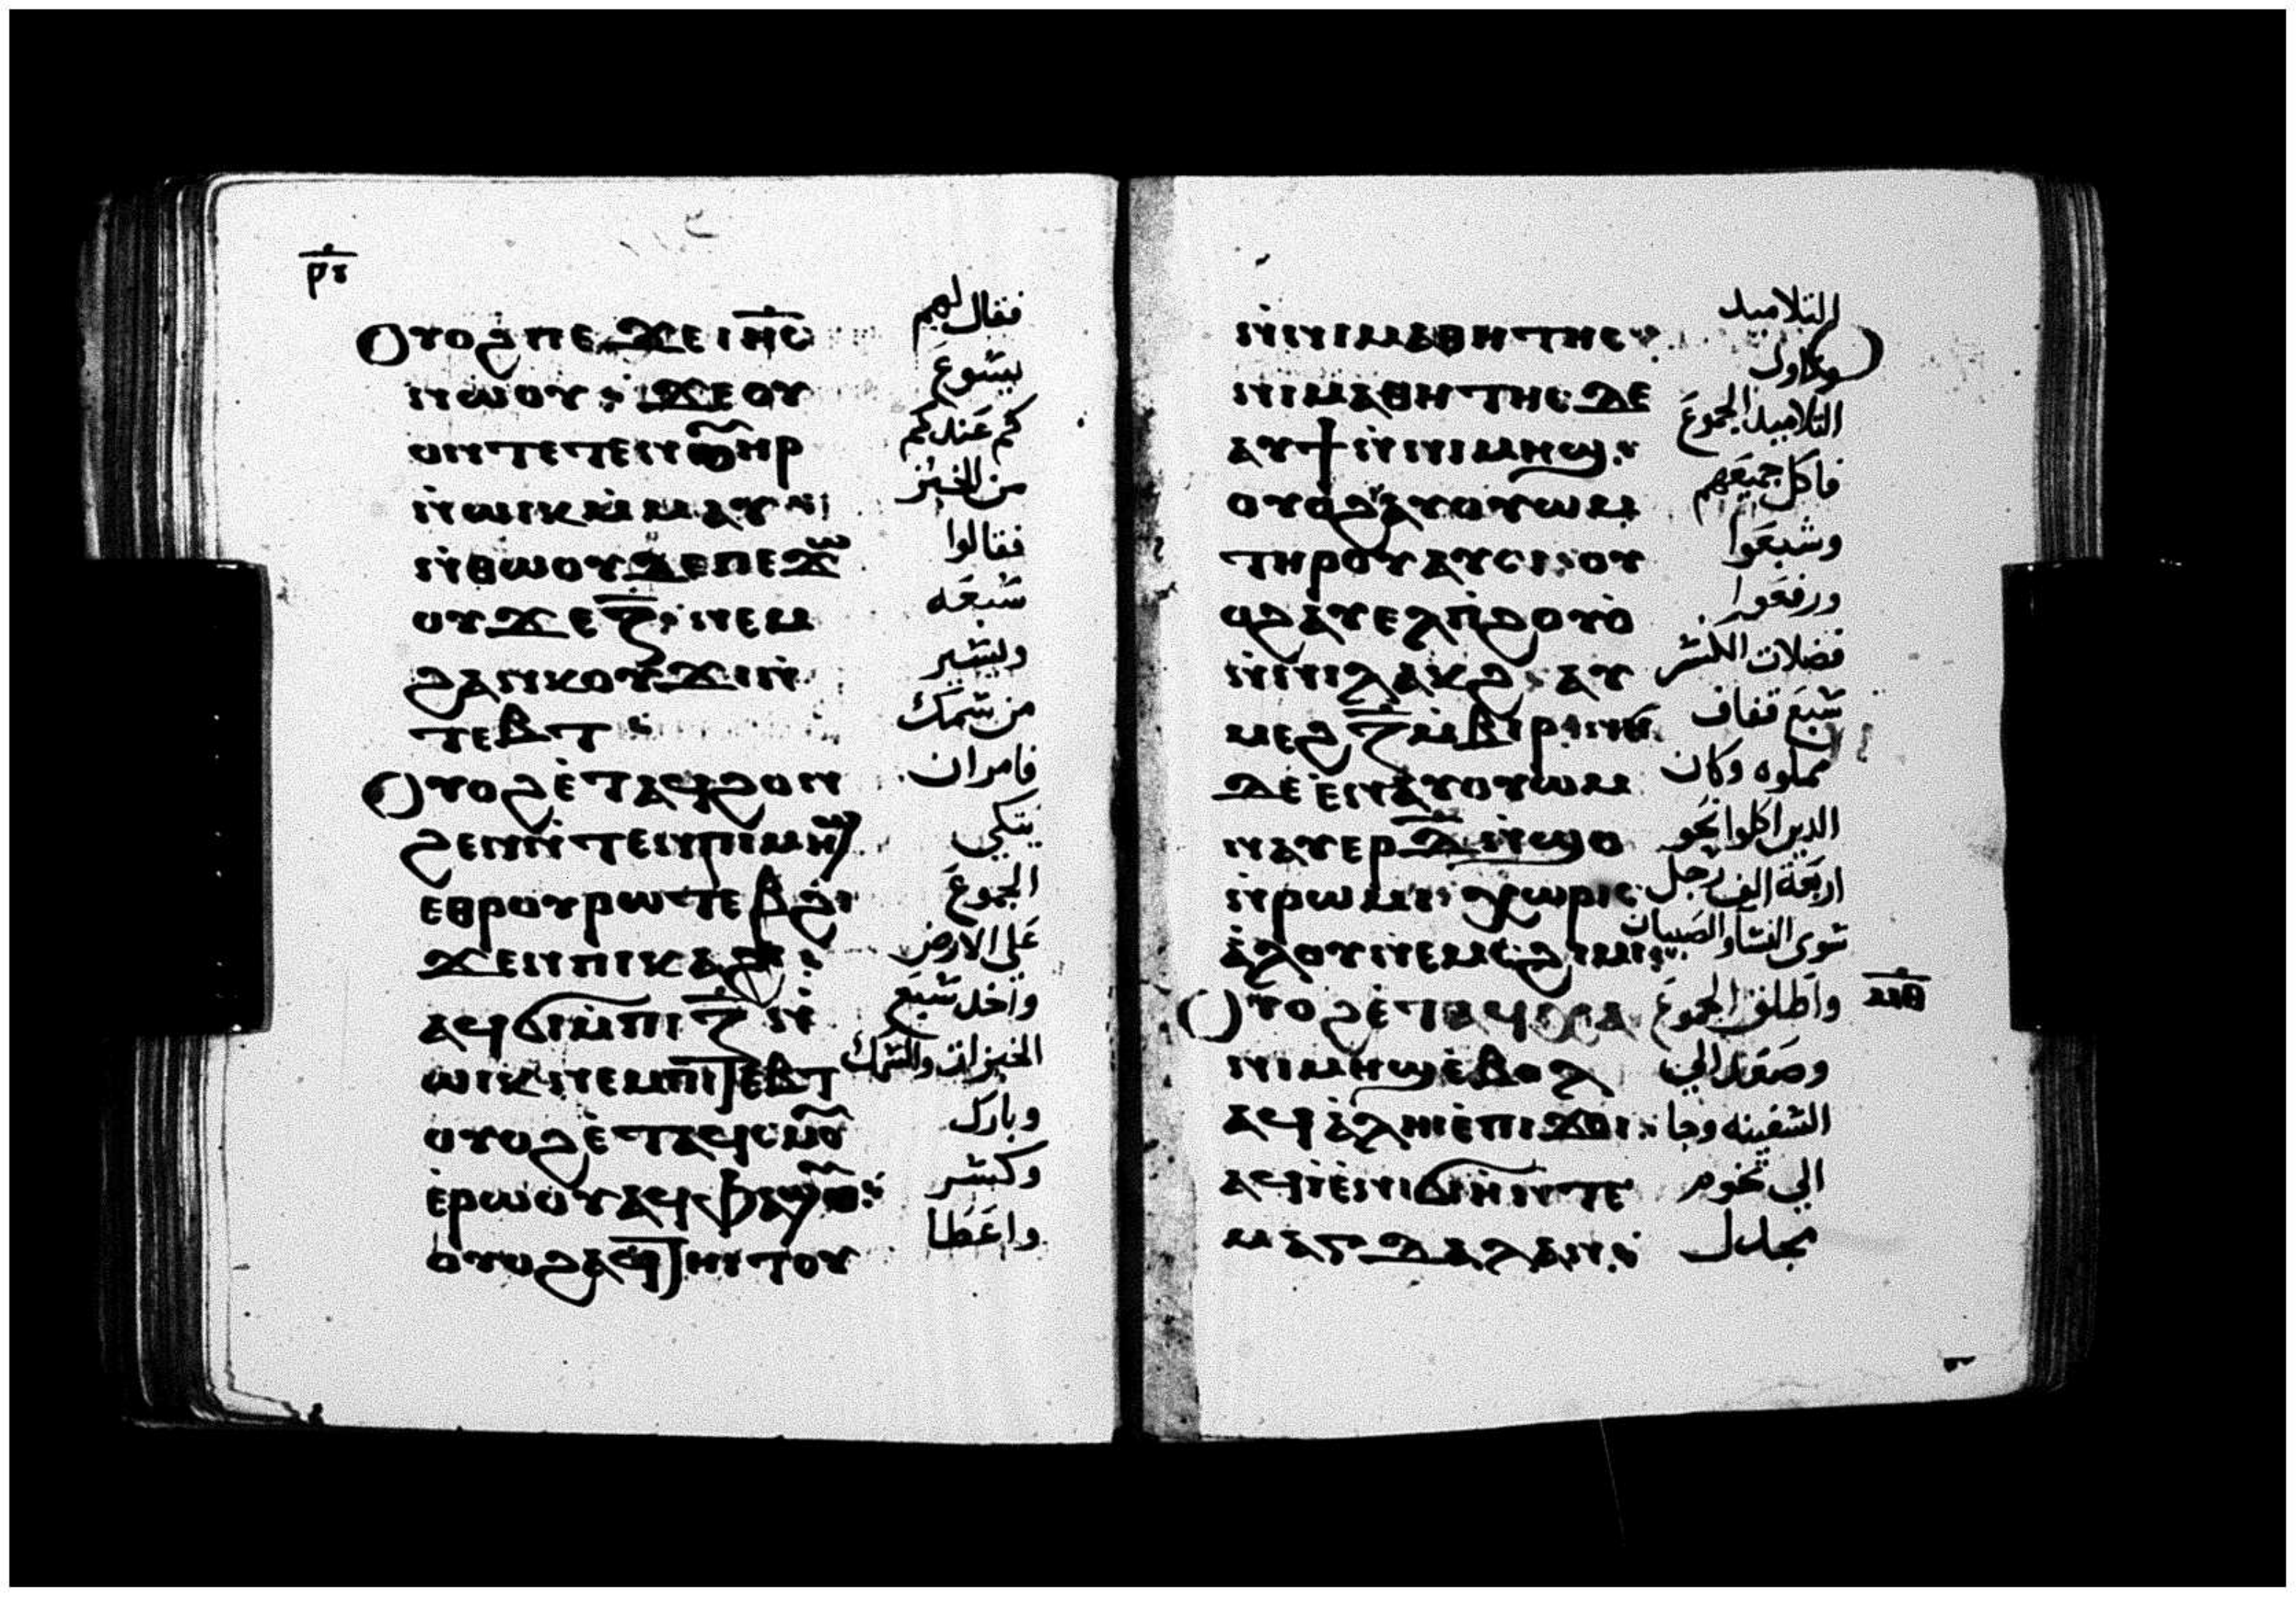 ⲣⲩ
ⲟⲩⲟϩ ⲡⲉϫⲉ ⲓⲏⲥ
ⲛⲱⲟⲩ ϫⲉ ⲟⲩ
ⲟⲛⲧⲉⲧⲉⲛ ⲟⲩⲏⲣ
ⲛⲱⲓⲕ ⲙⲙⲁⲩ
ⲛⲑⲱⲟⲩ ⲇⲉ ⲡⲉϫⲱ
ⲟⲩ ϫⲉ ⲍ ⲛⲉⲙ
ϩⲁⲛⲕⲟⲩϫⲓ ⲛ
ⲧⲉⲃⲧ
ⲟⲩⲟϩ ⲉⲧⲁϥϩⲟⲛ
ϩⲉⲛ ⲛⲧⲉⲛ ⲡⲓⲙⲏϣ
ⲉⲑⲣⲟⲩⲣⲱⲧⲉⲃ ϩⲓ
ϫⲉⲛ ⲡⲓⲕⲁϩⲓ
ⲁϥϭⲓ ⲙⲡⲓ ⲍ ⲛ
ⲱⲓⲕ ⲛⲉⲙ ⲡⲓⲧⲉⲃⲧ
ⲟⲩⲟϩ ⲉⲧⲁϥⲥⲙⲟⲩ
ⲉⲣⲱⲟⲩ ⲁϥⲫⲁϣⲟⲩ
ⲟⲩⲟϩ ⲁϥⲧⲏⲓⲧⲟⲩ
فقال لهم
يسوع
كم عندكم
من الخبز
فقالوا
سبعه
ويسير
من سمك
فامر ان
يتكي
الجموع
علي الارض
واخد سبع
الخبزات والسمك
وبارك
وكسر
واعطا
ⲛⲛⲓⲙⲁⲑⲏⲧⲏⲥ
ⲛⲓⲙⲁⲑⲏⲧⲏⲥ ⲇⲉ
ⲁⲩϯ ⲛⲛⲓⲙⲏϣ
ⲟⲩⲟϩ ⲁⲩⲟⲩⲱⲙ
ⲧⲏⲣⲟⲩ ⲁⲩⲥⲓ ⲟⲩ
ⲟϩ ⲁⲩⲉⲗ ⲡϩⲟⲩⲟ
ⲛⲛⲓⲗⲁⲕϩ ⲁⲩ
ⲙⲉϩ ⲍ ⲙⲃⲓⲣ ⲛⲏ
ⲇⲉ ⲉⲛⲁⲩⲟⲩⲱⲙ
ⲛⲁⲩⲉⲣ ⲇ ⲛϣⲟ
ⲛⲣⲱⲙⲓ ⲭⲱⲣⲓⲥ
ⲁⲗⲟⲩ ⲛⲉⲙ ⲥϩⲓⲙⲓ
ⲟⲩⲟϩ ⲉⲧⲁϥⲭⲁ
ⲛⲓⲙⲏϣ ⲉⲃⲟⲗ
ⲁϥⲁⲗⲏⲓ ⲉⲡⲓϫⲟⲓ
ⲁϥⲓ ⲉⲛⲓϭⲓⲏ ⲛⲧⲉ
ⲙⲁⲅⲇⲁⲗⲁⲛ
للتلاميد
وناول
التلاميد الجموع
فاكل جميعهم
وشبعوا
ورفعوا
فضلات الكسر
سبع قفاف
مملوه وكان
الدين اكلوا نحو
اربعة الف رجل
سوى النسا والصبيان
واطلق الجموع
وصعد الي
السفينه وجا
الي تخوم
مجدل
ⲙⲑ